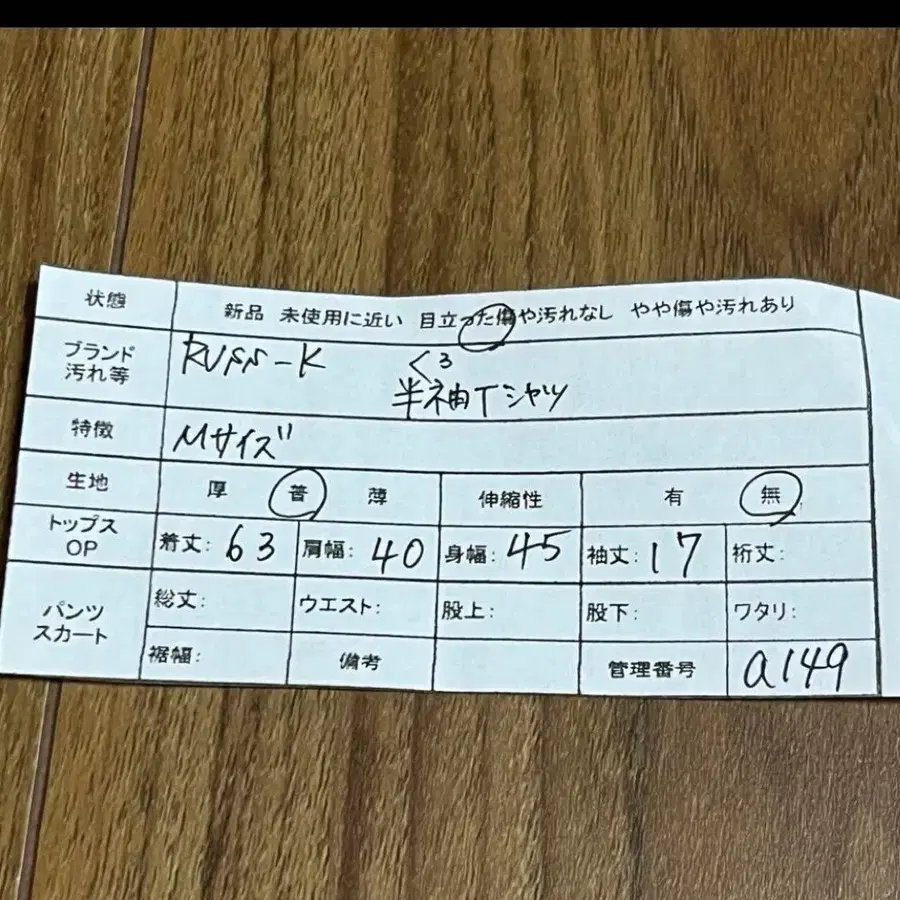 状態 新品 未使用に近い 目立った傷や汚れなし やや傷や汚れあり
ブランド
汚れ等
RUSS-K くろ
半袖Tシャツ
特徴 Mサイズ
生地 厚 普 薄 伸縮性 有 無
トップス
OP
着丈: 63 肩幅: 40 身幅: 45 袖丈: 17 裄丈:
パンツ
スカート
総丈: ウエスト: 股上: 股下: ワタリ:
裾幅: 備考 管理番号 a149